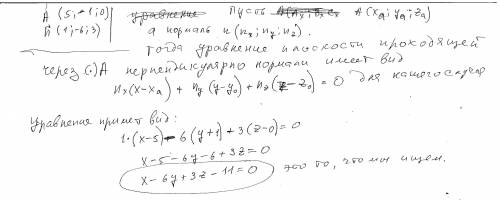 A (5; -1; 0) Пусть A(xa; ya; za)
n (1; -6; 3) а нормаль n (nx; ny; nz).
Тогда уравнение плоскости проходящей
через (·)A перпендикулярно нормали имеет вид
nx(x-xa) + ny(y-y0) + nz(z-z0) = 0 для нашего случая
уравнения примет вид:
1·(x-5) - 6(y+1) + 3(z-0) = 0
x-5-6y-6+3z=0
x-6y+3z-11=0 это то, что мы ищем.